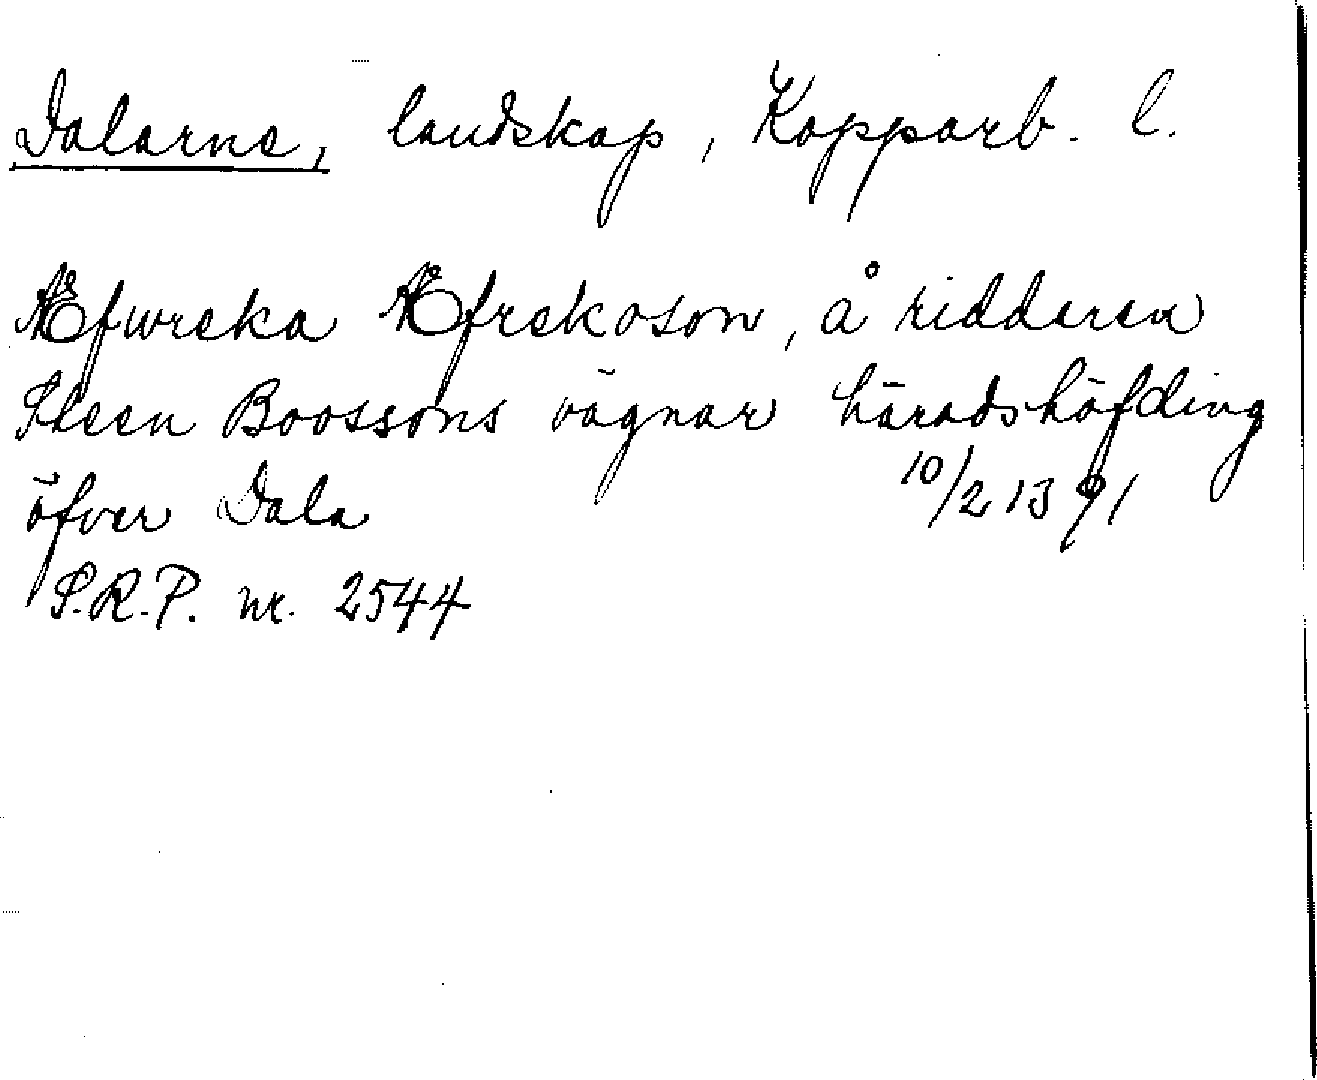 Dalarne, landskap, Kopparb. l.
Æfwreka Æfrekason, å ridderen
Steen Boossons vägnar häradshöfding
öfver Dala 10/2 1391
S.R.P. nr. 2544